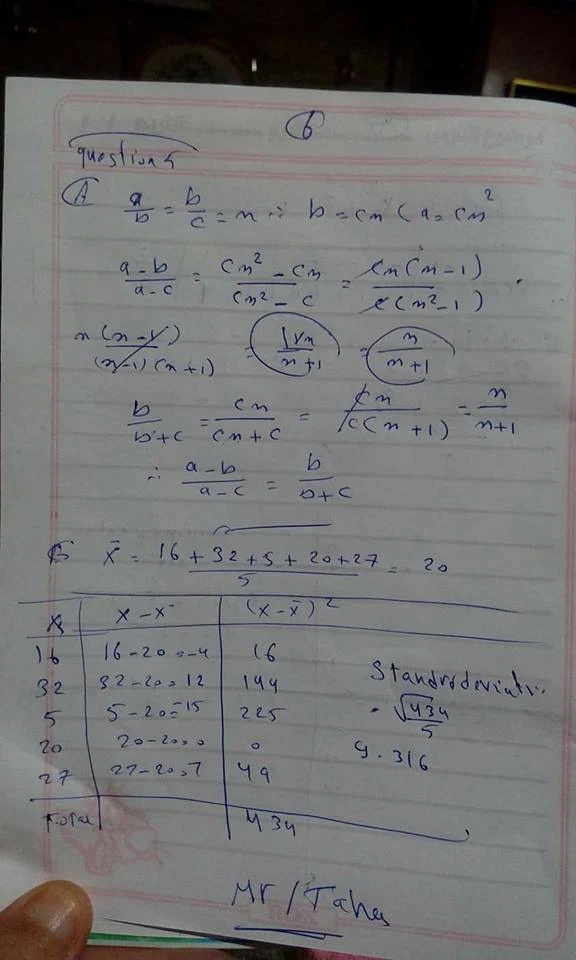 6
question 5
A a/b = b/c = m ∴ b = cm ( a = cm²
a-b/a-c = cm² - cm/cm² - c = cm(m-1)/c(m²-1)
m(m-1)/(m-1)(m+1) = m/m+1 = m/m+1
b/b+c = cm/cm+c = cm/c(m+1) = m/m+1
∴ a-b/a-c = b/b+c
x̄ = 16+32+5+20+27/5 = 20
X X-x̄ (x-x̄)²
16 16-20=-4 16
32 32-20=12 144
5 5-20=-15 225
20 20-20=0 0
27 27-20=7 49
Total 434
= √434/5
9.316
Mr / Taha